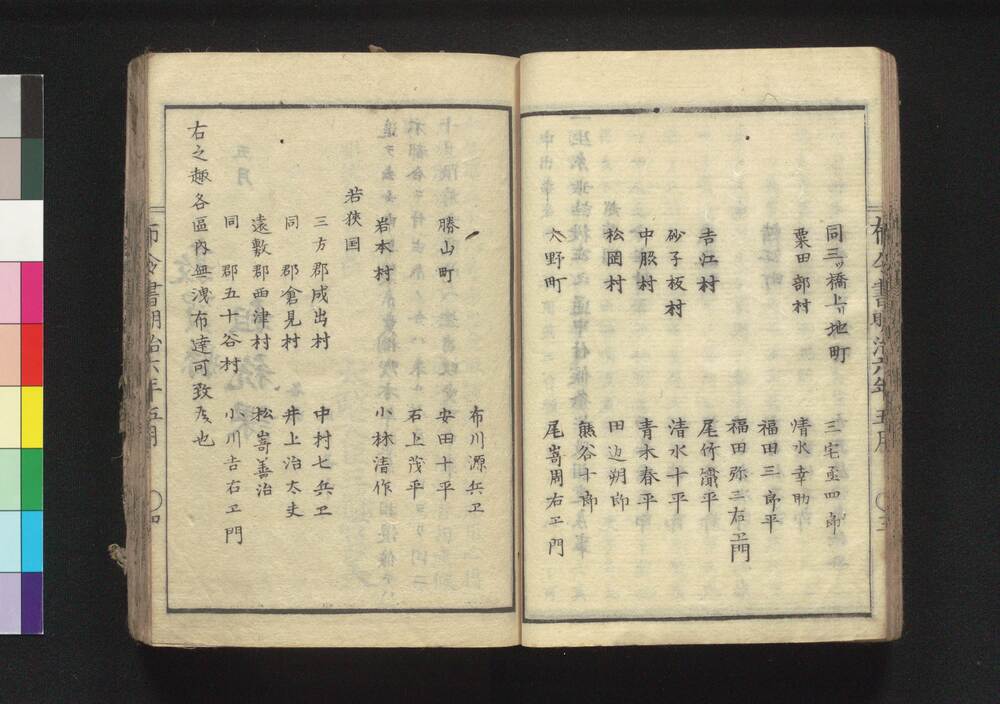 同三ツ橋上リ地町 三宅丞四郎
粟田部村 清水幸助
福田三郎平
福田弥二右ヱ門
吉江村 尾竹瀧平
砂子坂村 清水十平
中股村 青木春平
松岡村 田辺朔郎
大野町 熊谷十郎
尾嵜周右ヱ門
布川源兵ヱ
勝山町 安田十平
石上茂平
岩本村 小林清作
若狹国
三方郡成出村 中村七兵ヱ
同 郡倉見村 井上治太夫
遠敷郡西津村 松嵜善治
同 郡五十谷村 小川吉右ヱ門
右之趣各區內無洩布達可致者也
布令書明治六年五月 〇三
布令書明治六年五月 〇四